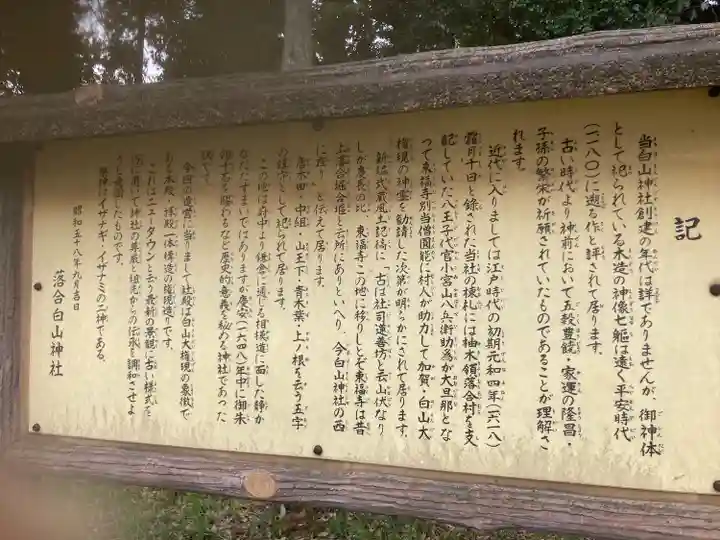 記
当白山神社創建の年代は詳でありませんが、御神体
として祀られている木造の神像七躯は遠く平安時代
(一一八〇)に遡る作と評されて居ります。
古い時代より神前において五穀豊饒・家運の隆昌・
子孫の繁栄が祈願されていたものであることが理解さ
れます。
近代に入りましては江戸時代の初期元和四年(一六一八)
霜月十日と録された当社の棟札には柚木領落合村を支
配していた八王子代官小宮山八兵衛助為が大旦那とな
って東福寺別当僧圓能に村人が助力して加賀・白山大
権現の神霊を勧請した次第が明らかにされて居ります。
新編武蔵風土記稿に「古は社司道善坊と云山伏なり
しが慶長の比、東福寺この地に移りしとぞ東福寺は昔
上落合堀合返と云所にありといへり、今白山神社の西
に在り」と伝えて居ります。
唐木田・中組・山王下・青木葉・上ノ根を云う五字
の鎮守として祀られて居ります。
この地は府中より鎌倉に通じる相模道に面した静か
なたたずまいではありますが慶安(一六四八)年中に御朱
印十石を賜わるなど歴史的意義を秘める神社であった
訳です。
今回の造営に当りまして社殿は白山大権現の象徴で
ある本殿・拝殿一体構造の権現造りです。
これはニュータウンと云う最新の景観に古い様式を
もって神社の尊厳と祖先からの伝承を調和させよ
うと意図したものです。
祭神はイザナギ・イザナミの二神である。
昭和五十八年九月吉日
落合白山神社